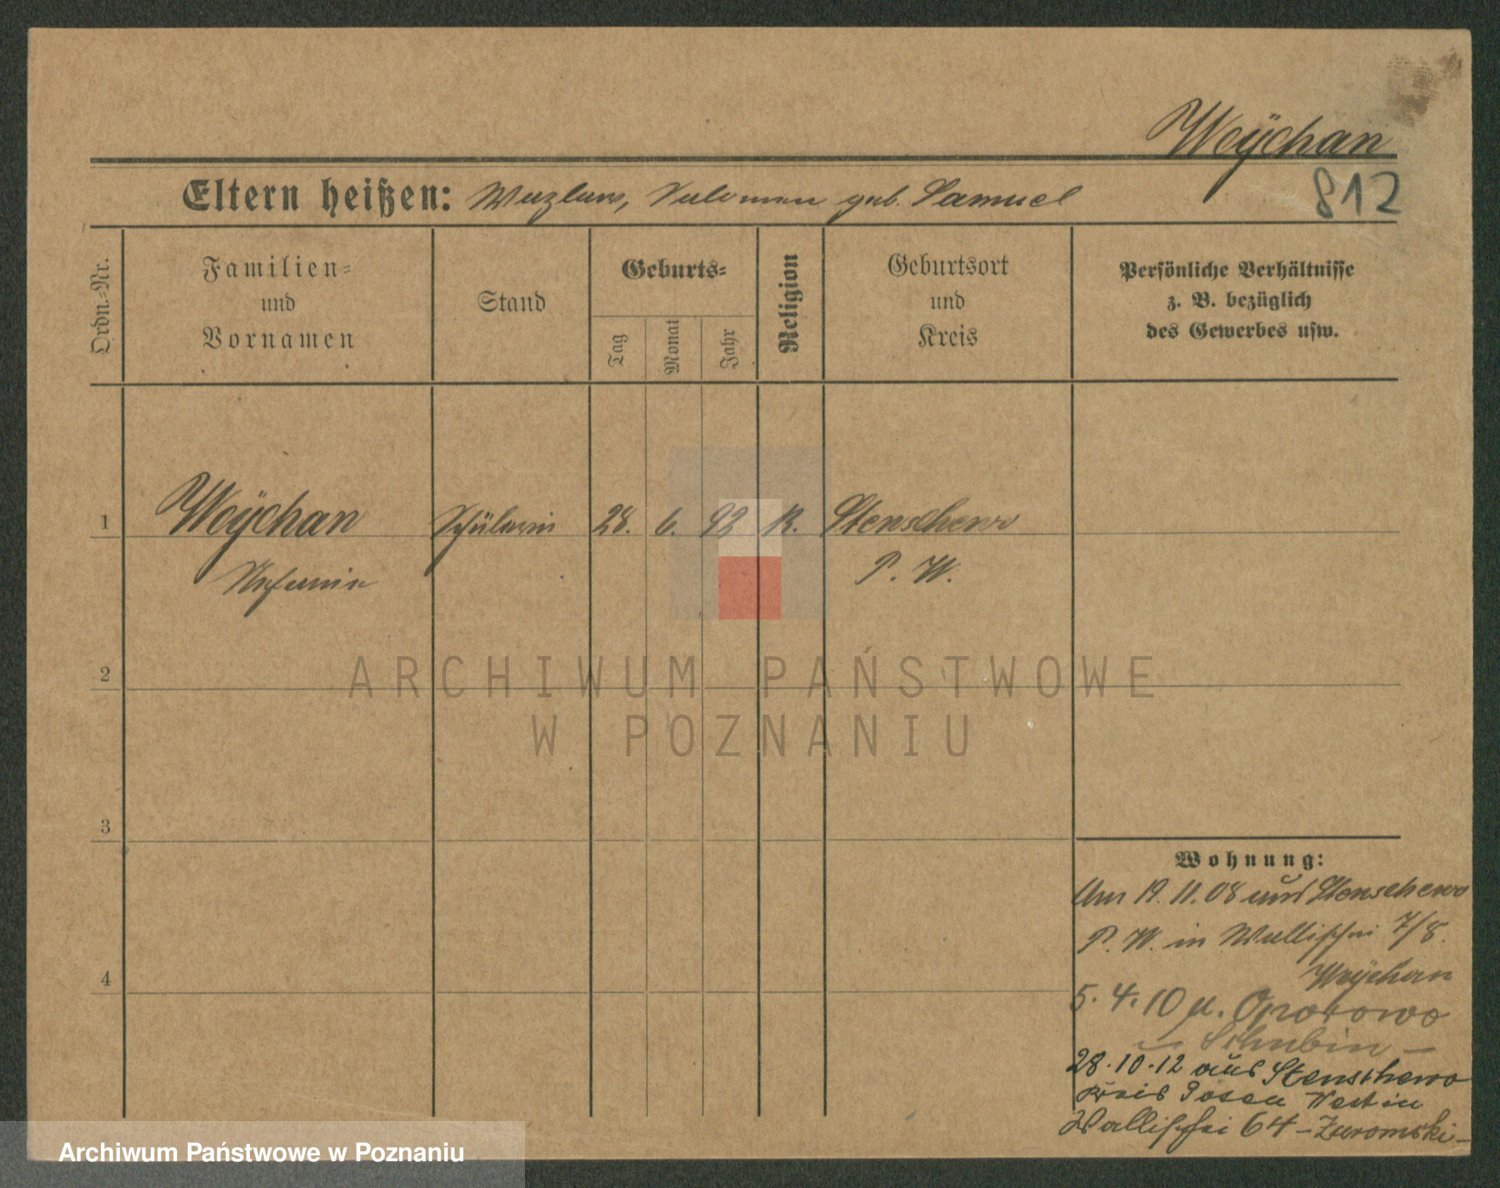 Weÿchan
812
Eltern heißen: Salomea geb. Samuel
Ordn.-Nr.
Familien-
und
Vornamen
Stand
Geburts-
Tag
Monat
Jahr
Religion
Geburtsort
und
Kreis
Persönliche Verhältnisse
z. B. bezüglich
des Gewerbes usw.
1
Weÿchan Schülerin 28. 6. 93 K. Stenschewo
Stefanie P. W.
2
3
4
Wohnung:
Am 19. 11. 08 aus Stenschewo
P. W. in Wallischei 7/8.
Weÿchan
5. 4. 10 n. Oporowo
Schubin –
28. 10. 12 aus Stenschewo
Kreis Posen West in
Wallischei 64 – Zuromski –
ARCHIWUM PAŃSTWOWE
W POZNANIU
Archiwum Państwowe w Poznaniu